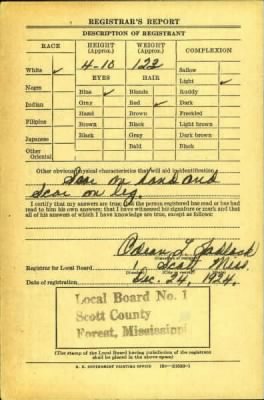 REGISTRAR'S REPORT
DESCRIPTION OF REGISTRANT
RACE HEIGHT (Approx.) WEIGHT (Approx.) COMPLEXION
White ✓ 4-10 122 Sallow
EYES HAIR Light ✓
Negro Blue ✓ Blonde Ruddy
Indian Gray Red ✓ Dark
Filipino Hazel Brown Freckled
Japanese Brown Black Light brown
Other Oriental Black Gray Dark brown
Bald Black
Other obvious physical characteristics that will aid identification
Scar on hand and
Scar on leg
I certify that my answers are true; that the person registered has read or has had
read to him his own answers; that I have witnessed his signature or mark and that
all of his answers of which I have knowledge are true, except as follows:
Registrar for Local Board Scott Miss.
Date of registration Dec. 24, 1924
Local Board No. 1
Scott County
Forest, Mississippi
(The stamp of the Local Board having jurisdiction of the registrant
shall be placed in the above space)
U. S. GOVERNMENT PRINTING OFFICE